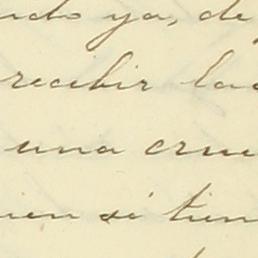 ndo ya, de
recibir la
una crue
ien si tien